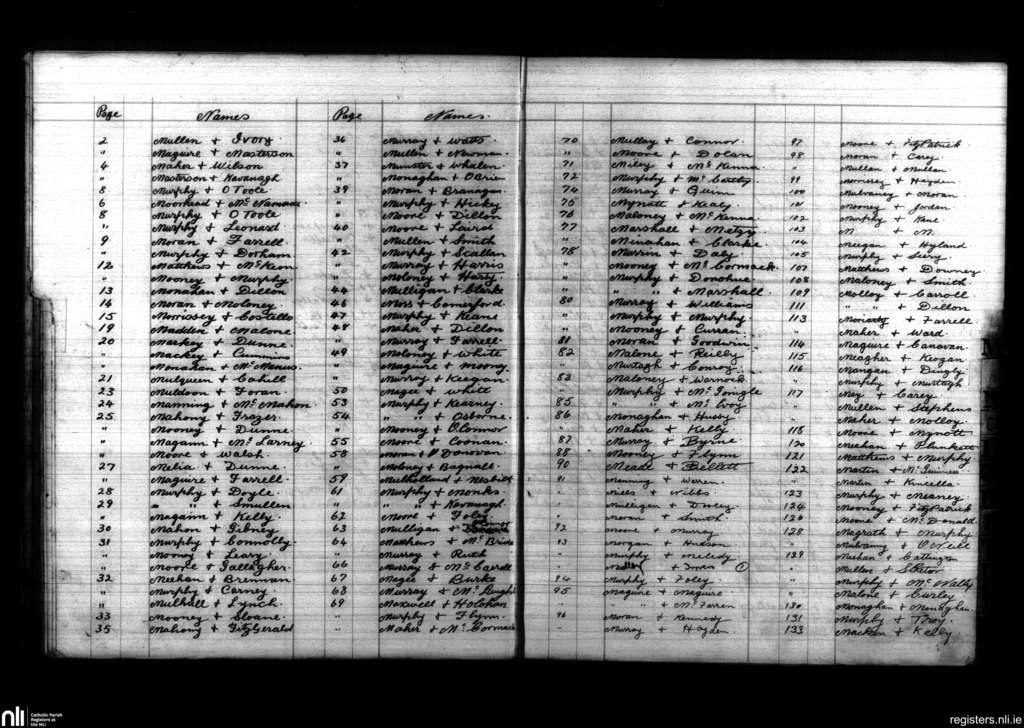 Page Names
2 Mullen + Ivory
" Maguire + Masterson
4 Maher + Wilson
" Masterson + Kavanagh
8 Murphy + O'Toole
6 Moorhead + McNamara
8 Murphy + O'Toole
" Murphy + Leonard
9 Moran + Farrell
" Murphy + Dorham
12 Matthews + McKeon
" Mooney + Murphy
13 Monahan + Dillon
14 Moran + Moloney
15 Morrissey + Costillo
19 Madden + Malone
20 Markey + Dunne
" Mackey + Cummins
" Monahan + McManus
21 Mulqueen + Cahill
23 Muldoon + Foran
24 Manning + McMahon
25 Mahony + Frazer
" Mooney + Dunne
" Magann + McLarney
" Moore + Walsh
27 Melia + Dunne
" Maguire + Farrell
28 Murphy + Doyle
29 " + Smullen
" Magann + Kelly
30 Mahon + Gibney
31 Murphy + Connolly
" Mooney + Leary
" Moore + Gallagher
32 Meehan + Brennan
" Murphy + Carney
" Mulhall + Lynch
33 Mooney + Sloane
35 Mahony + Fitzgerald
Page Names.
36 Murray + Watts
" Mullen + Newman
37 Munster + Whelan
" Monaghan + O'Brien
39 Moran + Branagan
" Murphy + Hickey
" Moore + Dillon
40 Moore + Laird
" Mullen + Smith
42 Murphy + Scallan
" Murray + Harris
" Moloney + Harty
44 Mulligan + Clarke
46 Moss + Comerford
47 Murphy + Keane
48 Maher + Dillon
" Murray + Farrell
49 Moloney + White
" Maguire + Moony
" Murray + Keegan
50 Magee + Whitt
53 Murphy + Kearney
54 " + Osborne
" Mooney + O'Connor
55 Moore + Coonan
58 Moran + O'Donovan
" Moloney + Bagnall
59 Mulholland + Nesbitt
61 Murphy + Monks
" " + Kavanagh
62 Moore + Foley
63 Mulligan +
64 Matthews + McBride
" Murray + Ruth
66 Murray + McCarroll
67 Magee + Burke
68 Murray + McLaughl
69 Maxwell + Holohan
" Murphy + Flynn
" Maher + McCormac
70 Mullay + Connor
" Moore + Dolan
71 Miley + McKenna
72 Murphy + McCarthy
74 Murray + Quinn
75 Mynatt + Kealy
76 Maloney + McKenna
77 Marshall + Metzy
" Minahan + Clarke
78 Murrin + Daly
" Mooney + McCormack
" Murphy + Donohue
" " + Marshall
80 Murray + Williams
" Murphy + Murphy
" Mooney + Curran
81 Moran + Goodwin
82 Malone + Reilly
" Murtagh + Conroy
83 Maloney + Warnock
" Murphy + McGonigle
85 " + McEvoy
86 Monaghan + Hussy
" Maher + Kelly
87 Murray + Byrne
88 Mooney + Flynn
90 Meade + Bellett
91 Manning + Warren
" Mills + Nibbs
" Mulligan + Duley
" Moran + Smith
92 Moore + Murray
93 Morgan + Hudson
" Murphy + Melody
" + ①
94 Murphy + Foley
95 Maguire + Maguire
" " + McFarren
96 Moran + Kennedy
" Murray + Hayden
97 Moore + FitzPatrick
98 Moran + Carey
" Mullen + Mullen
99 Morrissey + Hayden
100 Mulvaney + Moran
101 Mooney + Jordan
102 Murphy + Kane
103 M + M
104 Meegan + Hyland
105 Murphy + Leery
107 Matthews + Downey
108 Maloney + Smith
109 Molloy + Carroll
" " + Dillon
113 Moriarty + Farrell
" Maher + Ward
114 Maguire + Canavan
115 Meagher + Keogan
116 Mangan + Dingly
" Murphy + Murtagh
117 May + Carey
" Mullen + Stephens
" Maher + Molloy
118 Moore + Mynott
120 Meehan + Plunkett
121 Matthews + Murphy
122 Martin + McGuinness
" Martin + Kinsella
123 Murphy + Meaney
124 Mooney + FitzPatrick
126 Moore + McDonald
128 Magrath + Murphy
" Mulvanny + O'Neill
129 Meehan + Cattington
" Mullen +
" Murphy + McNally
" Malone + Curley
130 Monaghan + Monaghan
131 Murphy + Troy
133 Macken + Kelly
nli Catholic Parish Registers at the NLI
registers.nli.ie